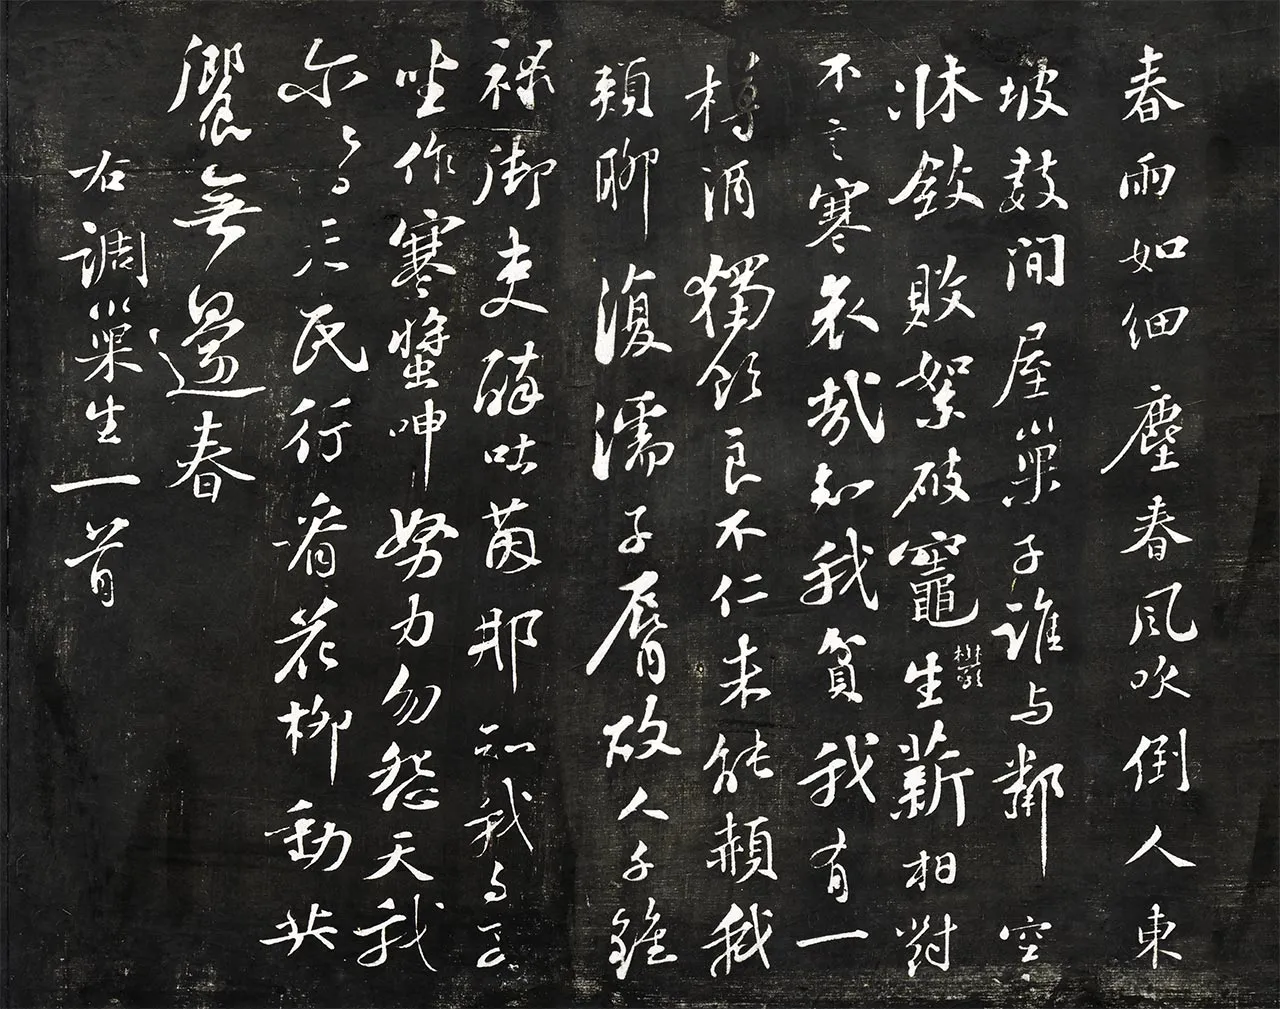 春雨如細塵春風吹倒人東
坡數間屋巢子誰与鄰空
牀斂敗絮破竈欝生薪相對
不言寒哀哉知我貧我有一
樽酒獨飲良不仁未能赬我
頰聊復濡子脣故人千鍾
祿御吏醉吐茵那知我与
坐作寒螿呻努力勿怨天我
尓民行看花柳動共
饗無邊春
右調巢生一首